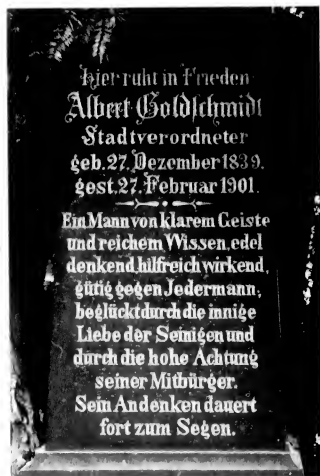 Hier ruht in Frieden
Albert Goldschmidt
Stadtverordneter
geb. 27. Dezember 1839.
gest. 27. Februar 1901.
Ein Mann von klarem Geiste
und reichem Wissen, edel
denkend, hilfreich wirkend,
gütig gegen Jedermann,
beglückt durch die innige
Liebe der Seinigen und
durch die hohe Achtung
seiner Mitbürger.
Sein Andenken dauert
fort zum Segen.